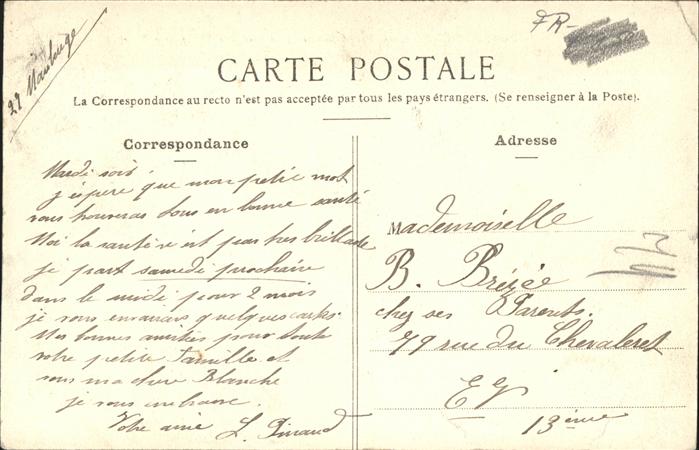 29 Maubeuge
FR-
CARTE POSTALE
La Correspondance au recto n'est pas acceptée par tous les pays étrangers. (Se renseigner à la Poste).
Correspondance
Mardi soir
j'espère que mon petit mot
vous trouveras tous en bonne santé
Moi la santé n'est pas très brillante
je part samedi prochain
dans le midi pour 2 mois
je vous enverrais quelques cartes.
Mes bonnes amitiés pour toute
votre petite famille et
vous ma chère Blanche
je vous embrasse.
Votre amie L. Pinaud
Adresse
Mademoiselle
B. Brézé
chez ses Parents.
79 rue du Chevaleret
EV
13ème